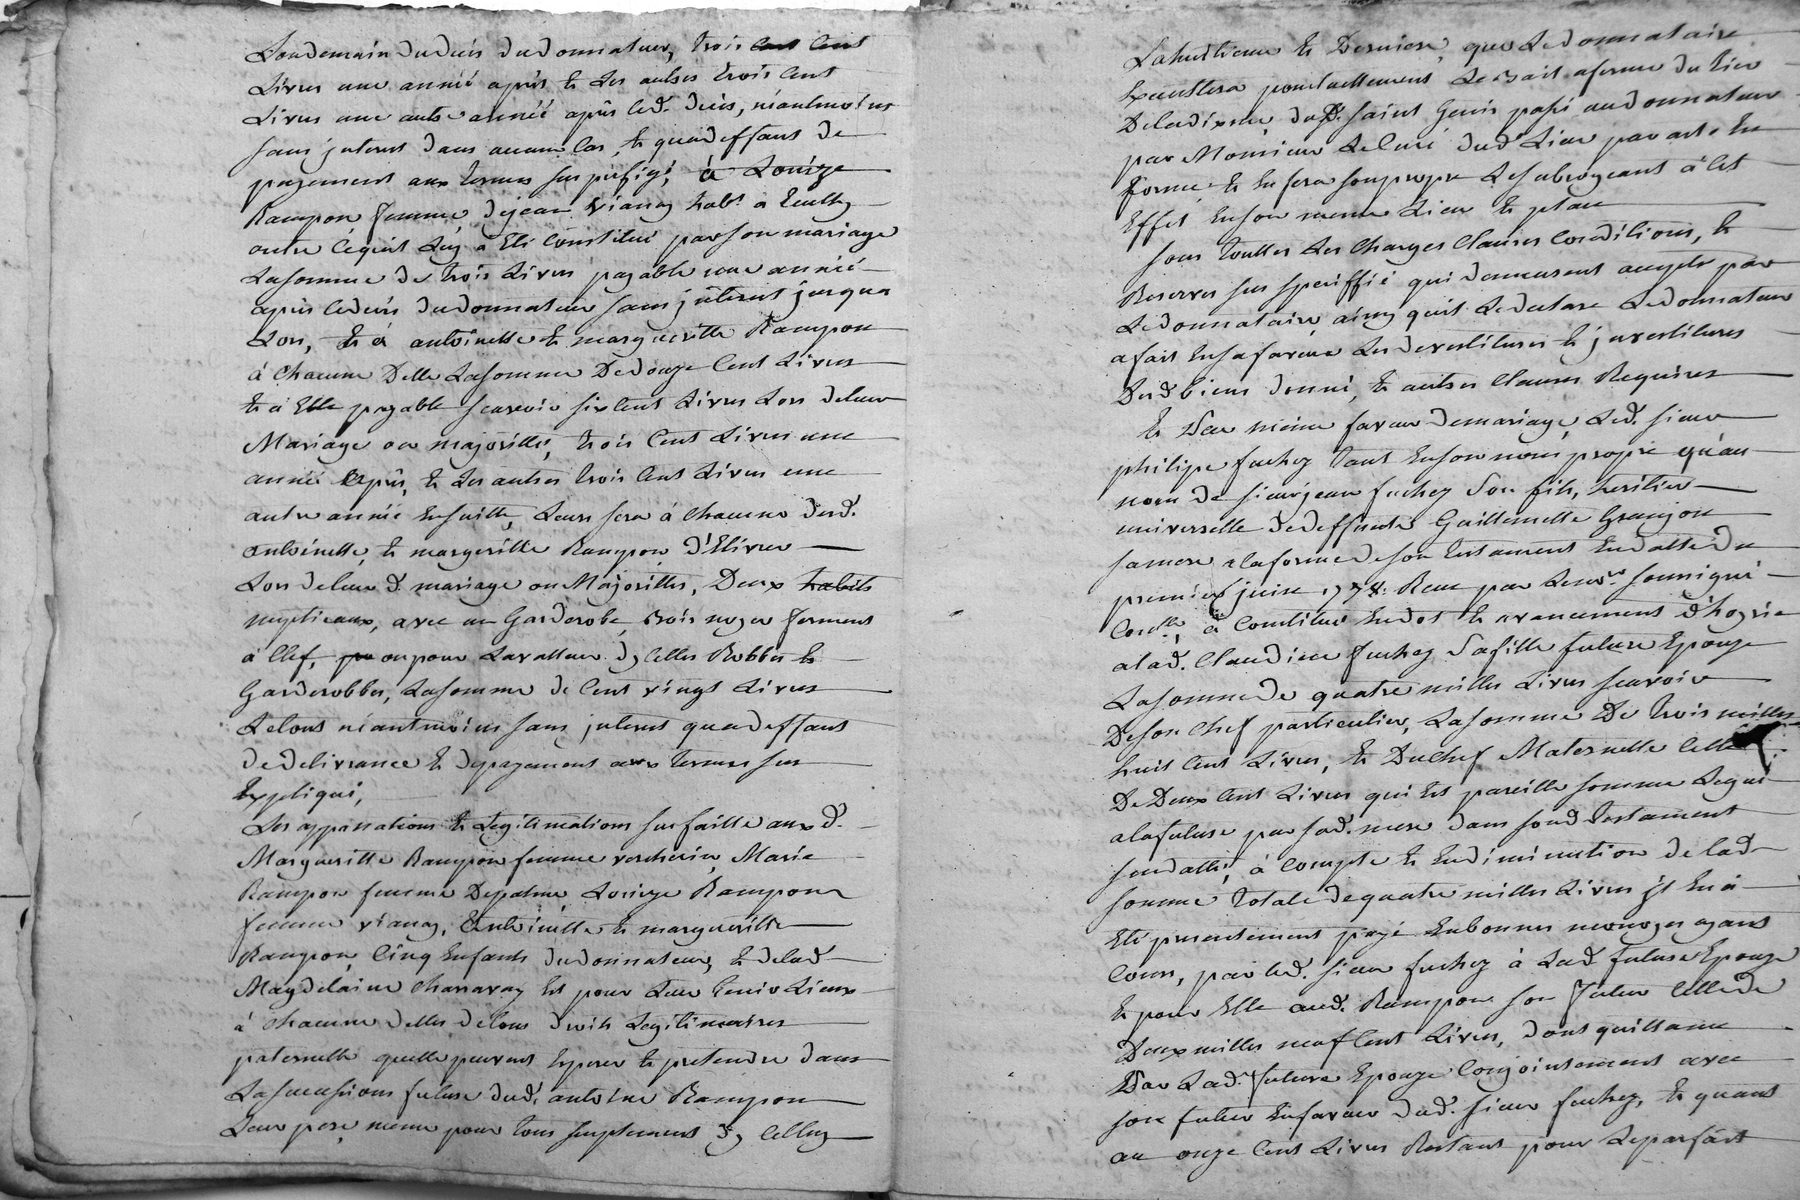 Lendemain du deces du donnateur, trois cent cent
Livres une année après et les autres trois cent
Livres une autre année après led. deces, néantmoins
sans jnterest dans aucun cas, et qua deffaut de
payement aux termes sus prefigé, à Louize
Rampon femme de jean vianay habt. a
outre ce quil luy a Eté Constitué par son mariage
La somme de trois Livres payable une année
après ledeces du donnateur sans jnterest jusqua
Lors, et à antoinette et margueritte Rampon
à Chacune Delle La somme De douze Cent Livres
et à Elle payable scavoir six Cent Livres Lors de leur
Mariage ou majoritté, trois Cent Livres une
année après, et Les autres trois Cent Livres une
autre année Ensuitte, Leurs sera à Chacune desd.
antoinette, et margueritte Rampon d'Elivrer
Lors de leur d. mariage ou Majorittés, Deux habits
nuptieaux, avec un Garderobe bois noyer fermant
à Clef, ou pour La valleur d'y Celles Robbes et
Garderobbes, La somme de Cent vingt Livres
Le tout néantmoins sans jnterest qua deffaut
de delivrance et de payement aux termes sus
Expliqué,
Les apparations et Legitimations sus faitte aux d.
Margueritte Rampon femme vercherin, Marie
Rampon femme Depalme, Louize Rampon
femme vianay, Antoinette et margueritte
Rampon, Cinq Enfants du donnateur, et de lad.
Magdelaine Charavay Est pour Leur tenir Lieux
à Chacune delles de tous droits Legitimaires
paternelle quelle peuvent Esperer et pretendre dans
La succession future dud. antoine Rampon
Leur pere, meme pour tous suplement d'y Celluy
La huitieme et Derniere, que Le donnataire
Executera ponctuellement Le Bail a ferme du tier
De la dixme, dud. saint Genis passé au donnateur
par Monsieur Le Curé dud. Lieu par acte En
forme et En sera son propre Le subrogeant à Cet
Effet En son meme Lieu et place
sous touttes Les Charges Clauses Conditions, et
Reserves sus speciffié qui demeurent accepté par
Le donnataire, ainsy quil Le declare Le donnateur
a fait En sa faveur Les devestitures et jnvestitures
Desd. biens donné, et autres Clauses Requises
Et En meme faveur de mariage, Led. sieur
philipe fuchez tant En son nom propre qu'au
nom de sieur jean fuchez son fils, heritier
universelle de deffunte Guillemette Granjon
sa mere a la forme de son testament En datte du
premier juin 177 Recu par Le nre. soussigné
Conlle, à Constitué En dot et avancement d'hoyrie
a lad. Claudine fuchez sa fille future Epouze
La somme de quatre milles Livres scavoir
De son Chef particulier, La somme De trois milles
huit Cent Livres, et Du Chef Maternelle Celle
De Deux Cent Livres qui Est pareille somme Legué
a la future par sad. mere dans sond. testament
susdatté, à Compte et En diminution de lad.
somme totale de quatre milles Livres jl En à
Eté presentement payé En bonnes monoyes ayant
Cours, par led. sieur fuchez à Lad. future Epouze
et pour Elle aud. Rampon son futur Celle de
Deux milles neuf Cent Livres, dont quittance
Par Lad. future Epouze Conjointement avec
son futur En faveur dud. sieur fuchez, et quant
au onze Cent Livres Restant pour Le parfait